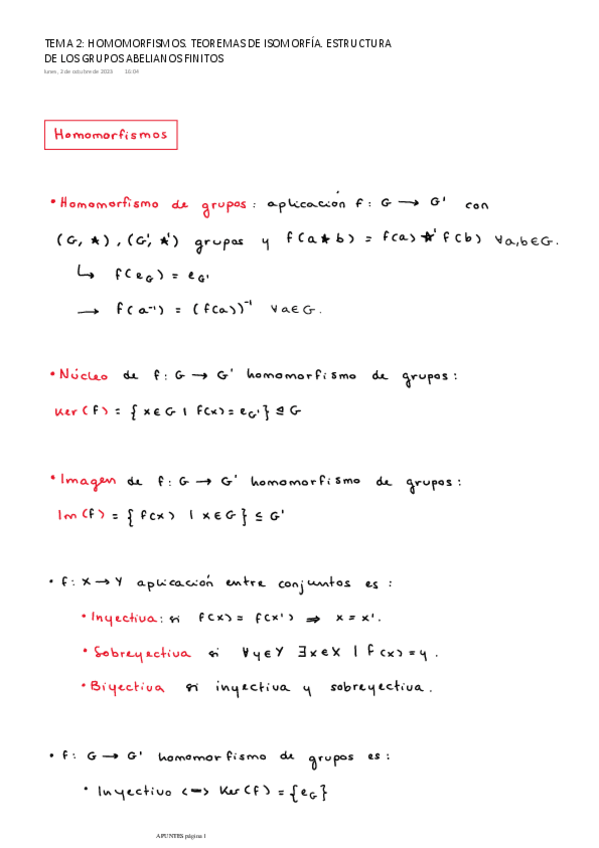 TEMA 2: HOMOMORFISMOS. TEOREMAS DE ISOMORFÍA. ESTRUCTURA
DE LOS GRUPOS ABELIANOS FINITOS
lunes, 2 de octubre de 2023 16:04
Homomorfismos
• Homomorfismo de grupos: aplicación f: G → G' con
(G, ★), (G', ★') grupos y f(a ★ b) = f(a) ★' f(b) ∀a,b∈G.
↳ f(e_G) = e_G'
→ f(a⁻¹) = (f(a))⁻¹ ∀a∈G.
• Núcleo de f: G → G' homomorfismo de grupos:
Ker(f) = { x∈G | f(x) = e_G' } ⊴ G
• Imagen de f: G → G' homomorfismo de grupos:
Im(f) = { f(x) | x∈G } ≤ G'
• f: X → Y aplicación entre conjuntos es:
• Inyectiva: si f(x) = f(x') ⇒ x = x'.
• Sobreyectiva si ∀y∈Y ∃x∈X | f(x) = y.
• Biyectiva si inyectiva y sobreyectiva.
• f: G → G' homomorfismo de grupos es:
• Inyectivo <=> Ker(f) = {e_G}
APUNTES página 1